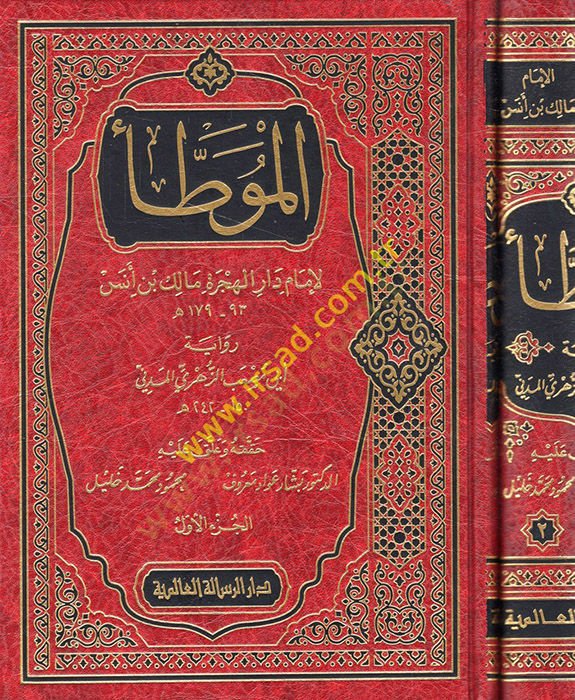 الموطأ
لإمام دار الهجرة مالك بن أنس
٩٣ - ١٧٩ هـ
رواية
أبي مصعب الزهري المدني
٢٤٢ هـ
حققه وعلق عليه
الدكتور بشار عواد معروف محمود محمد خليل
الجزء الأول
دار الرسالة العالمية
www.irsad.com.tr
الإمام
مالك بن أنس
طأ
الزهري المدني
عليه
محمود محمد خليل
٢
العالمية